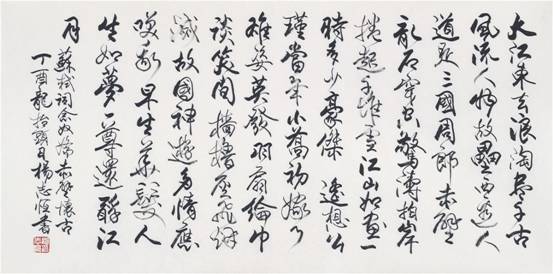 大江東去浪淘盡千古
風流人物故壘西邊人
道是三國周郎赤壁
亂石穿空驚濤拍岸
捲起千堆雪江山如畫一
時多少豪傑 遙想公
瑾當年小喬初嫁了
雄姿英發羽扇綸巾
談笑間檣櫓灰飛煙
滅故國神遊多情應
笑我早生華髮人
生如夢一尊還酹江
月 蘇軾詞念奴嬌赤壁懷古
丁酉龍抬頭日楊志恒書